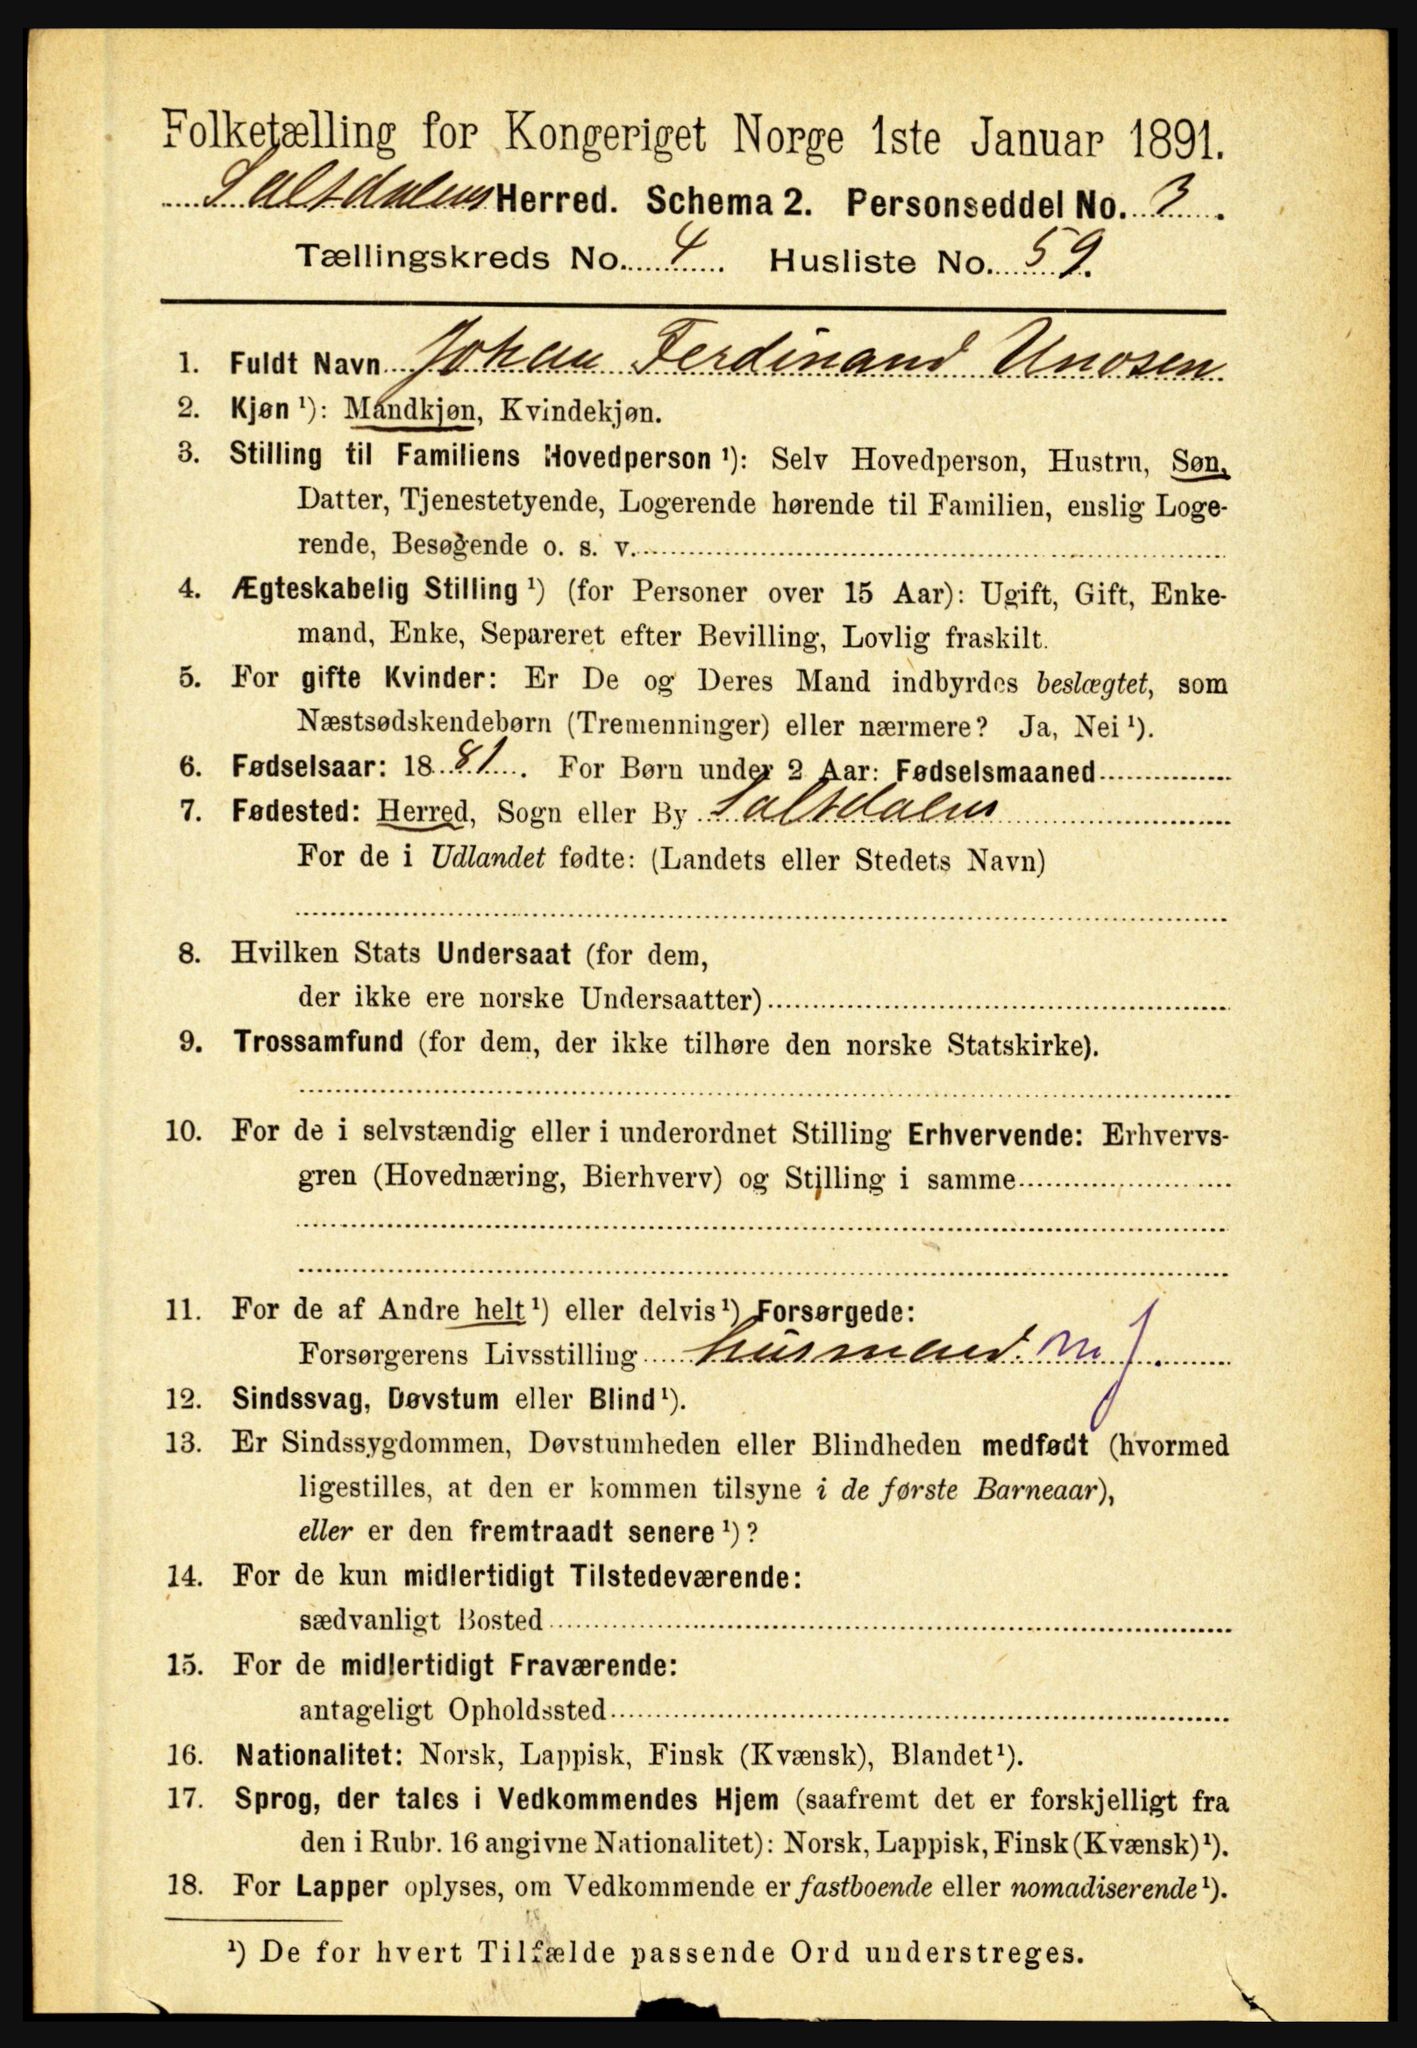 Folketælling for Kongeriget Norge 1ste Januar 1891.
Saltdalens Herred. Schema 2. Personseddel No. 3.
Tællingskreds No. 4 Husliste No. 59.
1. Fuldt Navn Johan Ferdinand Unosen
2. Kjøn ¹): Mandkjøn, Kvindekjøn.
3. Stilling til Familiens Hovedperson ¹): Selv Hovedperson, Hustru, Søn,
Datter, Tjenestetyende, Logerende hørende til Familien, enslig Loge-
rende, Besøgende o. s. v.
4. Ægteskabelig Stilling ¹) (for Personer over 15 Aar): Ugift, Gift, Enke-
mand, Enke, Separeret efter Bevilling, Lovlig fraskilt.
5. For gifte Kvinder: Er De og Deres Mand indbyrdes beslægtet, som
Næstsødskendebørn (Tremenninger) eller nærmere? Ja, Nei ¹).
6. Fødselsaar: 1881. For Børn under 2 Aar: Fødselsmaaned
7. Fødested: Herred, Sogn eller By Saltdalens
For de i Udlandet fødte: (Landets eller Stedets Navn)
8. Hvilken Stats Undersaat (for dem,
der ikke ere norske Undersaatter)
9. Trossamfund (for dem, der ikke tilhøre den norske Statskirke).
10. For de i selvstændig eller i underordnet Stilling Erhvervende: Erhvervs-
gren (Hovednæring, Bierhverv) og Stilling i samme
11. For de af Andre helt ¹) eller delvis ¹) Forsørgede:
Forsørgerens Livsstilling husmand m j.
12. Sindssvag, Døvstum eller Blind ¹).
13. Er Sindssygdommen, Døvstumheden eller Blindheden medfødt (hvormed
ligestilles, at den er kommen tilsyne i de første Barneaar),
eller er den fremtraadt senere ¹)?
14. For de kun midlertidigt Tilstedeværende:
sædvanligt Bosted
15. For de midlertidigt Fraværende:
antageligt Opholdssted
16. Nationalitet: Norsk, Lappisk, Finsk (Kvænsk), Blandet ¹).
17. Sprog, der tales i Vedkommendes Hjem (saafremt det er forskjelligt fra
den i Rubr. 16 angivne Nationalitet): Norsk, Lappisk, Finsk (Kvænsk) ¹).
18. For Lapper oplyses, om Vedkommende er fastboende eller nomadiserende ¹).
¹) De for hvert Tilfælde passende Ord understreges.